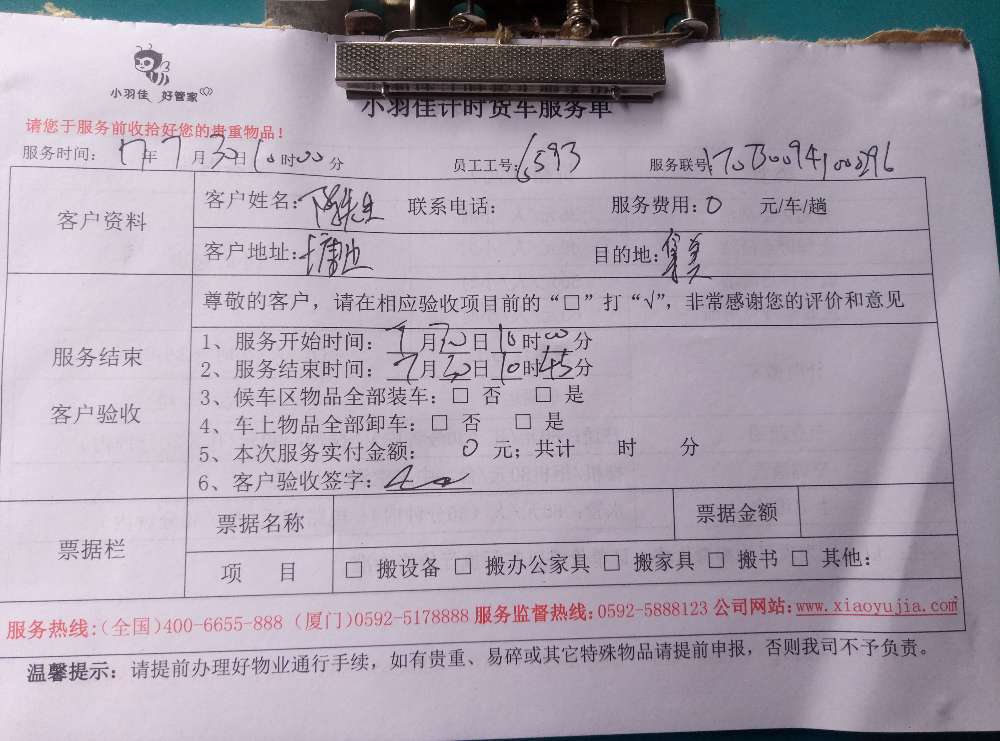 小羽佳 好管家
小羽佳计时货车服务单
请您于服务前收拾好您的贵重物品！
服务时间：17年7月30日10时00分 员工工号：6593 服务联号：
客户资料 客户姓名：陈先生 联系电话： 服务费用：0 元/车/趟
客户地址：塘边 目的地：集美
尊敬的客户，请在相应验收项目前的“□”打“√”，非常感谢您的评价和意见
服务结束
客户验收
1、服务开始时间：7月30日10时00分
2、服务结束时间：7月30日10时45分
3、候车区物品全部装车：□ 否 □ 是
4、车上物品全部卸车：□ 否 □ 是
5、本次服务实付金额： 0 元；共计 时 分
6、客户验收签字：
票据栏 票据名称 票据金额
项 目 □ 搬设备 □ 搬办公家具 □ 搬家具 □ 搬书 □ 其他：
服务热线：（全国）400-6655-888（厦门）0592-5178888 服务监督热线：0592-5888123 公司网站：www.xiaoyujia.com
温馨提示：请提前办理好物业通行手续，如有贵重、易碎或其它特殊物品请提前申报，否则我司不予负责。